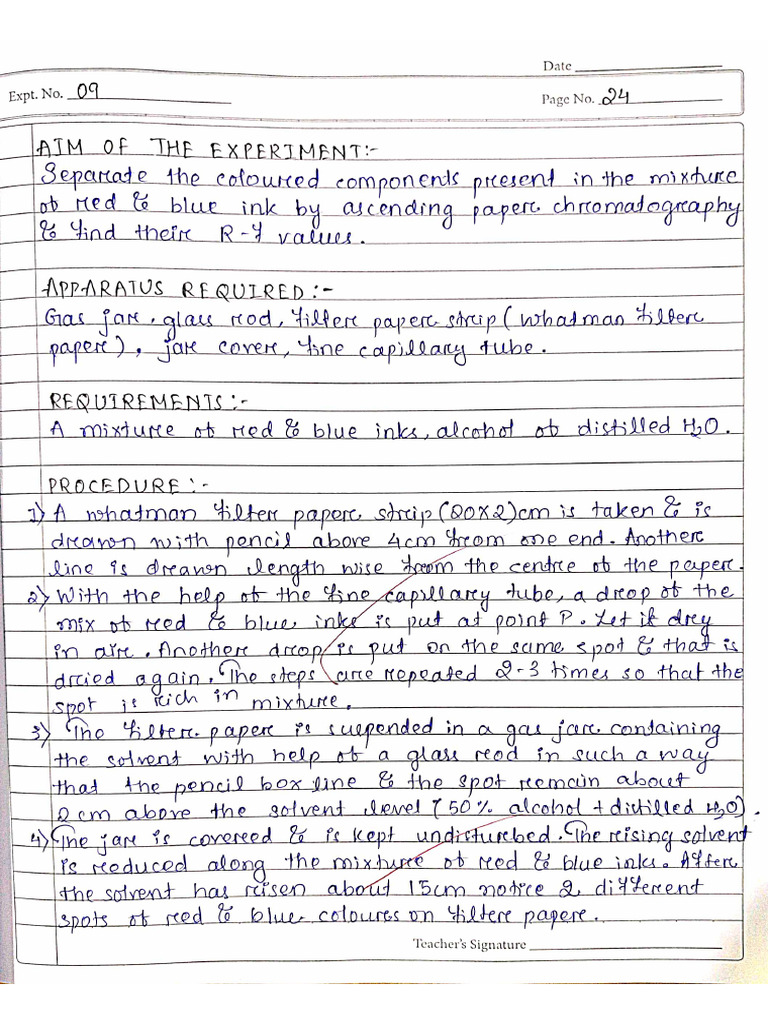 Date
Expt. No. 09
Page No. 24
AIM OF THE EXPERIMENT:-
Separate the coloured components present in the mixture
of red & blue ink by ascending paper chromatography
& find their R-f values.
APPARATUS REQUIRED:-
Gas jar, glass rod, filter paper strip (Whatman filter
paper), jar cover, fine capillary tube.
REQUIREMENTS:-
A mixture of red & blue inks, alcohol of distilled H2O.
PROCEDURE:-
1) A whatman filter paper strip (20x2)cm is taken & is
drawn with pencil above 4cm from one end. Another
line is drawn length wise from the centre of the paper.
2) With the help of the fine capillary tube, a drop of the
mix of red & blue inks is put at point P. Let it dry
in air. Another drop is put on the same spot & that is
dried again. The steps are repeated 2-3 times so that the
spot is rich in mixture.
3) The filter paper is suspended in a gas jar containing
the solvent with help of a glass rod in such a way
that the pencil box line & the spot remain about
2cm above the solvent level (50% alcohol + distilled H2O).
4) The jar is covered & is kept undisturbed. The rising solvent
is reduced along the mixture of red & blue inks. After
the solvent has risen about 15cm notice 2 different
spots of red & blue colours on filter paper.
Teacher's Signature